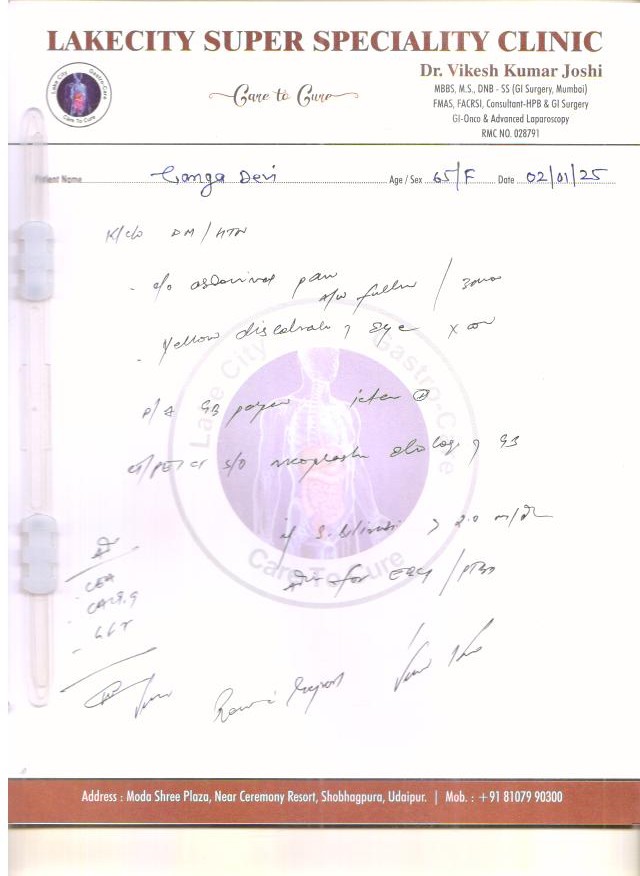 LAKECITY SUPER SPECIALITY CLINIC
Dr. Vikesh Kumar Joshi
MBBS, M.S., DNB - SS (GI Surgery, Mumbai)
FMAS, FACRSI, Consultant-HPB & GI Surgery
GI-Onco & Advanced Laparoscopy
RMC NO. 028791
Lake City Gastro-Care
Care To Cure
Care to Cure
Patient Name Ganga Devi Age / Sex 65/F Date 02/01/25
K/c/o DM / HTN
- c/o abdominal pain
/ 3
- Yellow discolorat of eye x
P/A GB icter
CT/PET CT s/o neoplastic of GB
if S. bilirubi > 2.0 m/dl
Adv for ERCP / PTBD
Adv
- CEA
- CA19.9
- LFT
Lake City Gastro-Care
Care To Cure
Address : Moda Shree Plaza, Near Ceremony Resort, Shobhagpura, Udaipur. | Mob. : +91 81079 90300